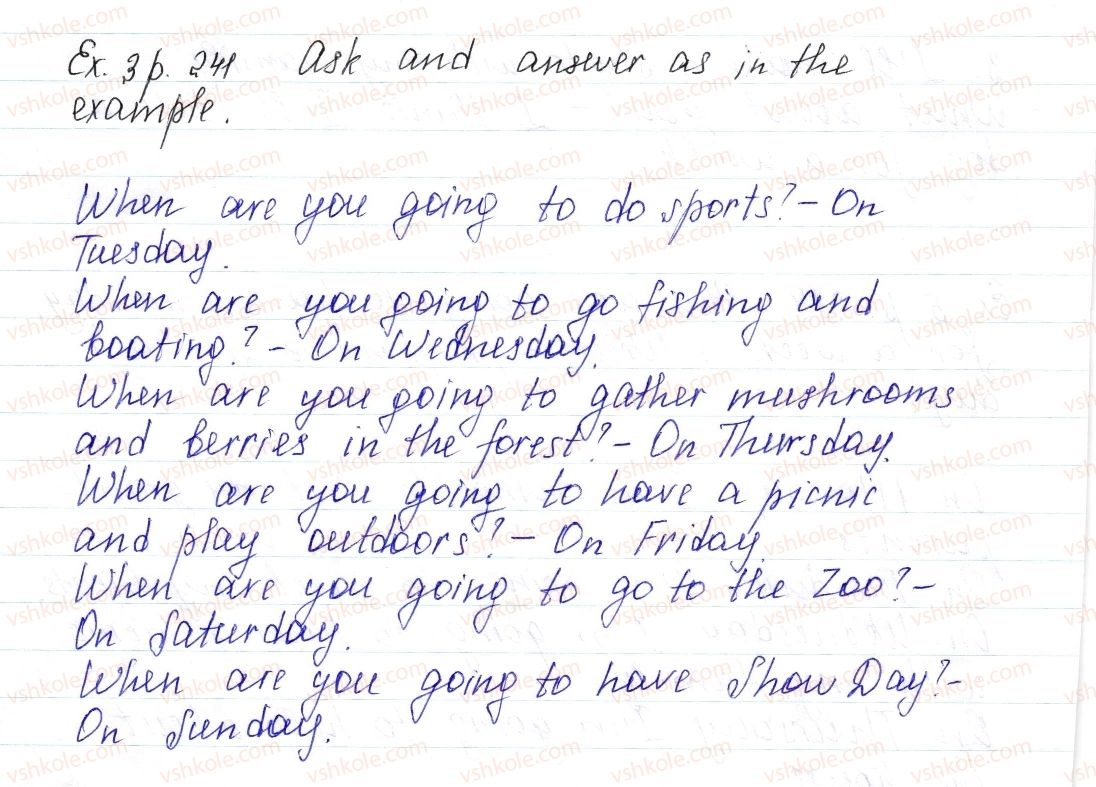 Ex. 3 p. 241 Ask and answer as in the
example.
When are you going to do sports? – On
Tuesday.
When are you going to go fishing and
boating? – On Wednesday.
When are you going to gather mushrooms
and berries in the forest? – On Thursday.
When are you going to have a picnic
and play outdoors? – On Friday.
When are you going to go to the Zoo? –
On Saturday.
When are you going to have Show Day? –
On Sunday.